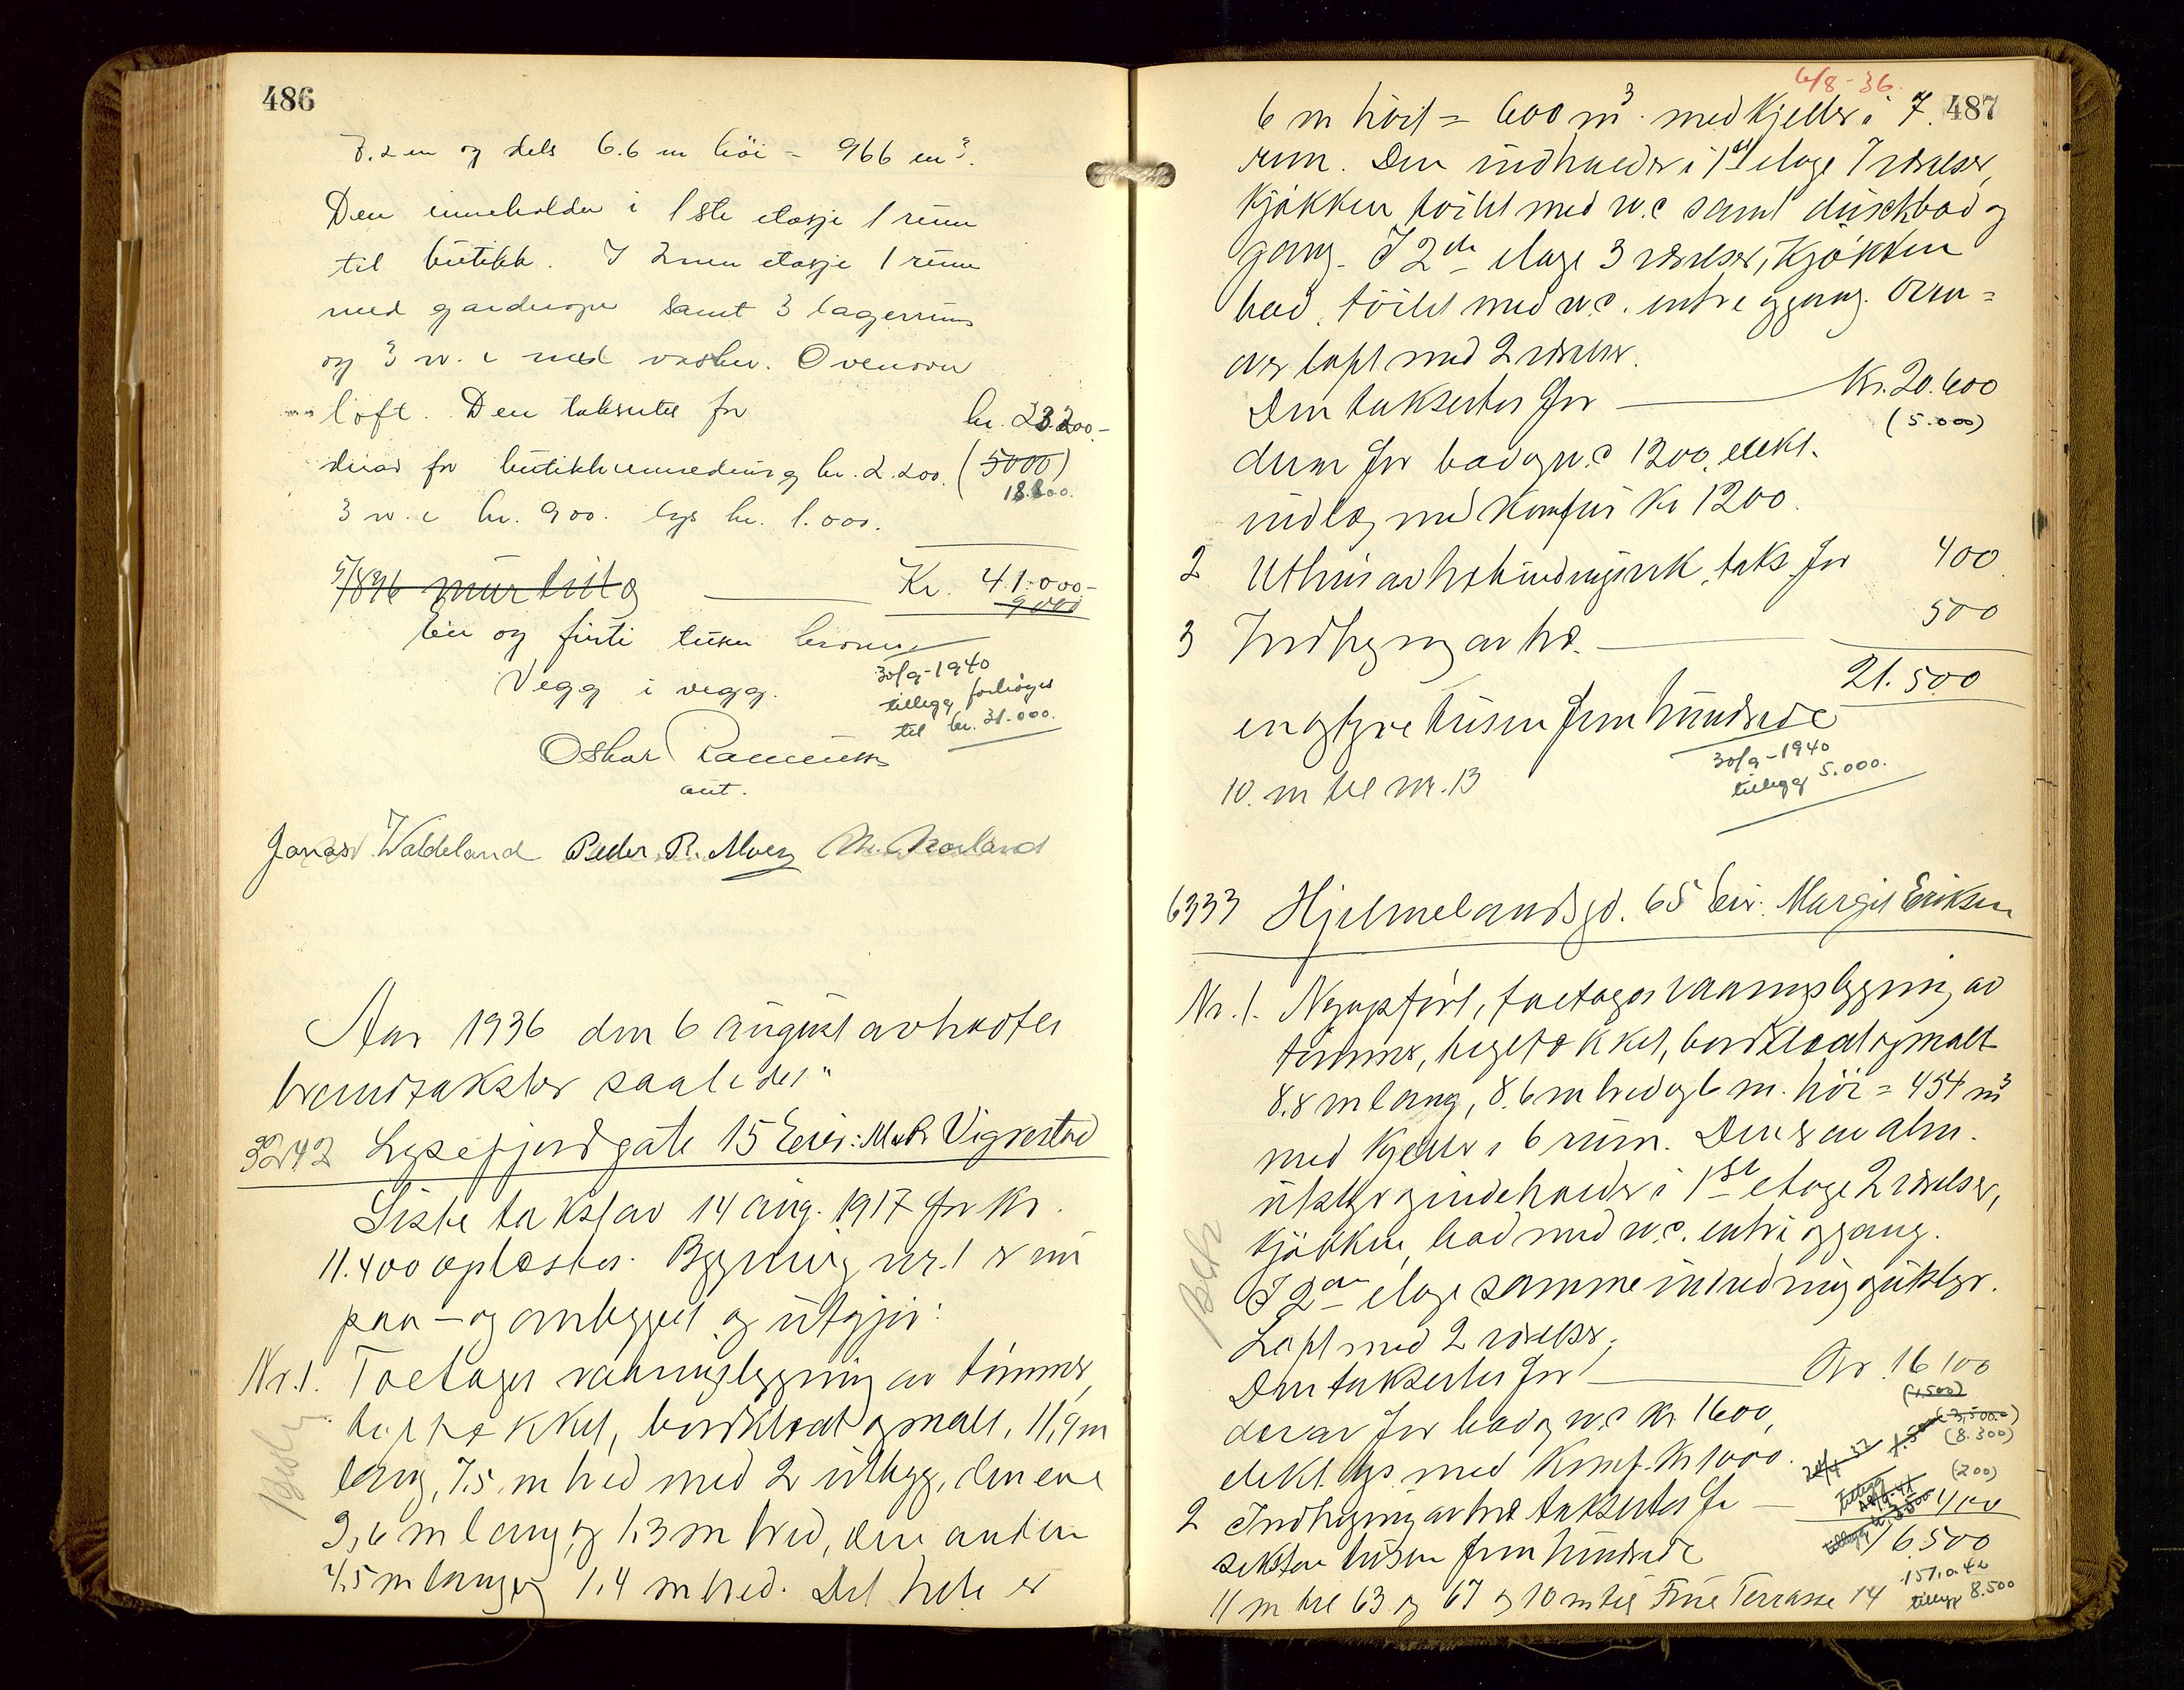 486
7.2 m og dels 6.6 m höi = 966 m³.
Den inneholder i 1ste etasje 1 rum
til butikk. I 2nen etasje 1 rum
med garderope samt 3 lagerrum
og 3 w.c med vasker. Ovenover
loft. Den takseres for kr. 23.200.-
derav for butikkinnredning kr. 2.200. (5000)
18.800.
3 w.c kr. 900. lys kr. 1.000.
5/8 36 mur tillæg Kr. 41.000.-
9000
En og firti tusen kroner
Vegg i vegg.
30/9-1940
tillegg forhöyes
til kr. 31.000.
Oskar Rasmussen
aut.
Jonas Waldeland Peder R. Moen M. Norland
Aar 1936 den 6 august avholdtes
brandtakster saaledes"
3242 Lysefjordgate 15 Eier: M. Vigrestad
Siste takst av 14 aug. 1917 for kr.
11.400 oplæstes. Bygning nr. 1 er nu
paa- og ombygget og utgjør:
Nr. 1. Toetages vaaningsbygning av tømmer,
tegltækket, bordklædt og malt, 11,9 m
lang, 7.5 m bred med 2 utbygg, den ene
3,6 m lang og 1,3 m bred, den anden
4,5 m lang og 1,4 m bred. Det hele er
6/8-36
487
6 m höit = 600 m³. med Kjelder i 7
rum. Den indholder i 1st etage 7 værelser,
Kjøkken toilet med w.c samt duschbad og
gang. I 2den etage 3 værelser, Kjøkken
bad, toilet med w.c. entre og gang. Oven=
over loft med 2 værelser.
Den taksertes for Kr. 20.600
(5.000)
derav for bad og w.c 1200, elekt.
indlæg med Komfur Kr 1200.
2 Uthus av træbindingsverk, taks. for 400
3 Indhegning av træ. 500
21.500
en og tyve tusen fem hundrede
30/9-1940
tillegg 5.000.
10. m til nr. 13
6333 Hjelmelandsgd. 65 Eier: Margit Eriksen
Nr. 1. Nyopført, toetages vaaningsbygning av
tømmer, tegltækket, bordklædt og malt
8.8 m lang, 8.6 m bred og 6 m. höi = 454 m³
med Kjelder i 6 rum. Den er av alm.
utstyr og indeholder i 1ste etage 2 værelser,
Kjøkken, bad med w.c. entre og gang.
I 2den etage samme inredning og utstyr.
Loft med 2 værelser.
Den taksertes for Kr. 16100
(1,500)
derav for bad og w.c Kr. 1600, (3,500.-)
(8.300)
elekt. lys med Komf. Kr 1000.
(200)
2 Indhegning av træ taksertes for 400
seksten tusen fem hundrede 16500
11 m til 63 og 67 og 10 m til Frue Terrasse 14
tillegg 8.500